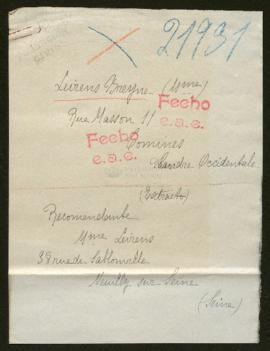 21931
Leirens Breyne (Mme)
Fecho
e.a.e.
Rue Masson 11
Fecho
e.a.e.
Comines
Flandre Occidentale
(Extracto)
Recomendente
Mme Leirens
38 rue de Sablonville
Neuilly sur Seine
(Seine)